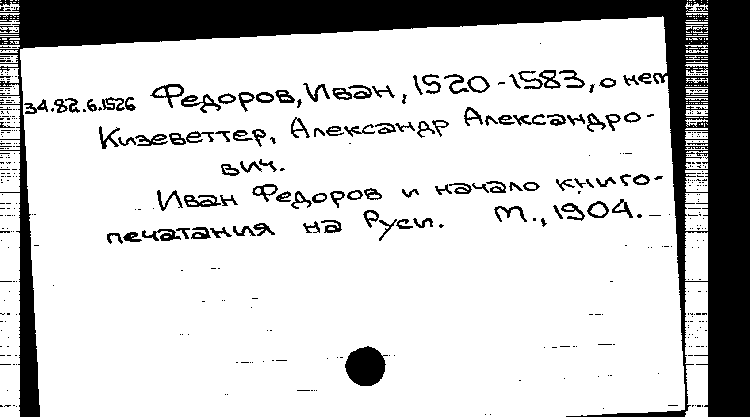 34.82.6.1526 Федоров, Иван, 1520-1583, о нем
Кизеветтер, Александр Александро-
вич.
Иван Федоров и начало книго-
печатания на Руси. М., 1904.